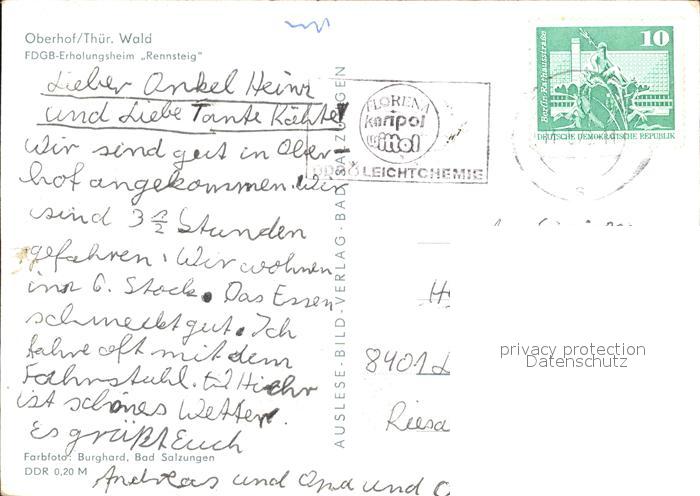 Oberhof/Thür. Wald
FDGB-Erholungsheim „Rennsteig"
Lieber Onkel Heinz
und Liebe Tante Käthe!
Wir sind gut in Ober-
hof angekommen. Wir
sind 3 1/2 Stunden
gefahren. Wir wohnen
im 6. Stock. Das Essen
schmeckt gut. Ich
fahre oft mit dem
Fahrstuhl. Hiehr
ist schönes Wetter.
Es grüßt Euch
Andreas und Opa und O
Farbfoto: Burghard, Bad Salzungen
DDR 0,20 M
AUSLESE-BILD-VERLAG · BAD SALZUNGEN
FLORENA
karipol
mitol
LEICHTCHEMIE
Berlin, Rathausstraße
10
DEUTSCHE DEMOKRATISCHE REPUBLIK
H
8401
Riesa
privacy protection
Datenschutz